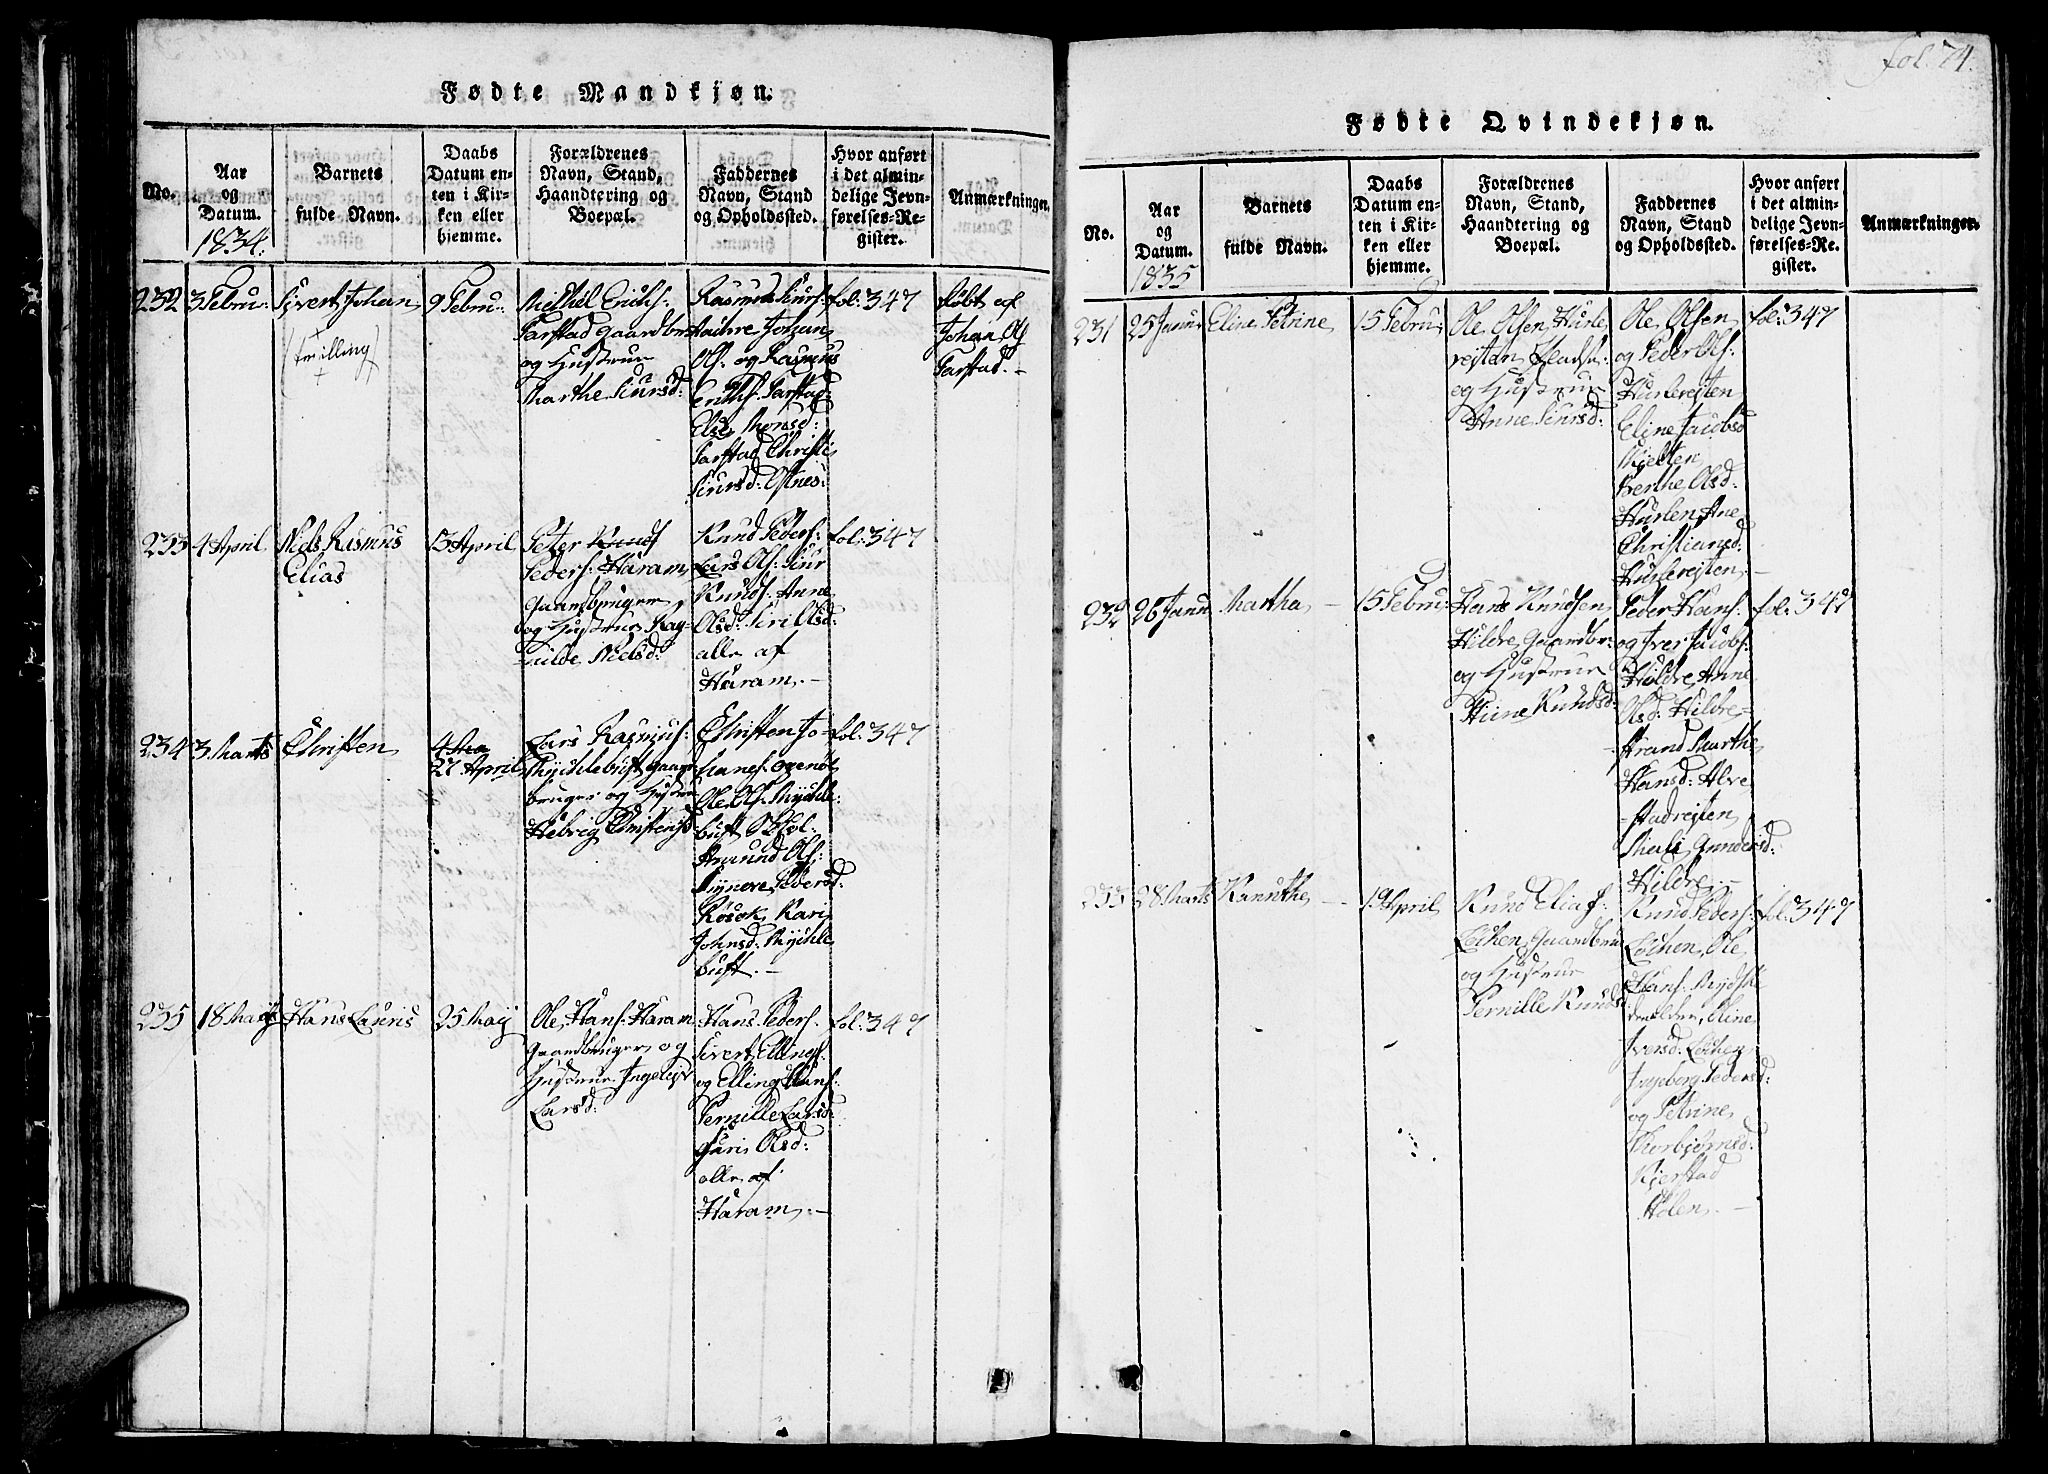 fol. 74.
Fødte Mandkjøn.
No.
Aar
og
Datum.
1834.
Barnets
fulde Navn.
Daabs
Datum en-
ten i Kir-
ken eller
hjemme.
Forældrenes
Navn, Stand,
Haandtering og
Boepæl.
Faddernes
Navn, Stand
og Opholdssted.
Hvor anført
i det almin-
delige Jevn-
førelses-Re-
gister.
Anmærkninger.
232
3 Febru:
Sivert Johan
(trilling)
9 Febru:
Michel Erichs:
Farstad gaardbr
og Hustrue
Marthe Siursd:
Rasmus Siurs:
Johan
Ols: og Rasmus
Erichs: Farstad
Else Monsd:
Farstad Christi
Siursd: Østnes:
fol: 347
døbt af
Johan Ols
Farstad.-
233
4 April
Niels Rasmus
Elias
13 April
Peter Knuds
Peders: Haram
Gaardbruger
og Hustrue Rag-
nilde Nielsd:
Knud Peders:
Lars Ols: Siur
Knuds: Anne
Olsd: Siri Olsd:
alle af
Haram.-
fol: 347
234
3 Marts
Christen
4 Ma
27 April
Lars Rasmus:
Mychlebust gaard
bruger og Hustrue
Hebrig Christensd
Christen Jo-
hanes:
Ole Ols: Mychle-
bust
Amund Ols:
Synneve Pedersd:
Røsok Kari
Johnsd: Mychle
bust.-
fol: 347
235
18 Maij
Hans Lauris
25 Maij
Ole Hans: Haram
Gaardbruger og
Hustrue Ingeleif
Larsd:
Hans Peders:
Sivert Ellings:
og Elling Hans:
Pernille Larsd:
Guri Olsd:
alle af
Haram.-
fol: 347
Fødte Qvindekjøn.
No.
Aar
og
Datum.
1835
Barnets
fulde Navn.
Daabs
Datum en-
ten i Kir-
ken eller
hjemme.
Forældrenes
Navn, Stand,
Haandtering og
Boepæl.
Faddernes
Navn, Stand
og Opholdssted.
Hvor anført
i det almin-
delige Jevn-
førelses-Re-
gister.
Anmærkninger.
231
25 Janu:
Eline Petrine
15 Febru:
Ole Olsen Hurle
rejten
og Hustrue
Anne Siursd:
Ole Olsen
og Peder Ols:
Hurlerejten
Eline Jacobsd
Mielten
Berthe Olsd:
Hurlen Ane
Christiansd:
Hurlerejten.-
fol: 347
232
26 Janu
Martha -
15 Febru:
Hans Knudsen
Hildre Gaardbr:
og Hustrue
Knudsd:
Peder Hans:
og Iver Jacobs:
Hildre Anne
Olsd: Hildre-
strand Marthe
Hansd: Alve
stadrejten
Gundersd:
Hildre.-
fol: 347
233
28 Marts
Kanuthe -
19 April
Knud Elias:
Løchen Gaardbru
og Hustrue
Pernille Knudsd:
Knud Peders:
Løchen Ole
Hans:
Eline
Iversd: Løchen
Ingeborg Pedersd:
og Petrine
Thorbjørnsd:
Kierstad
Holen.-
fol: 347